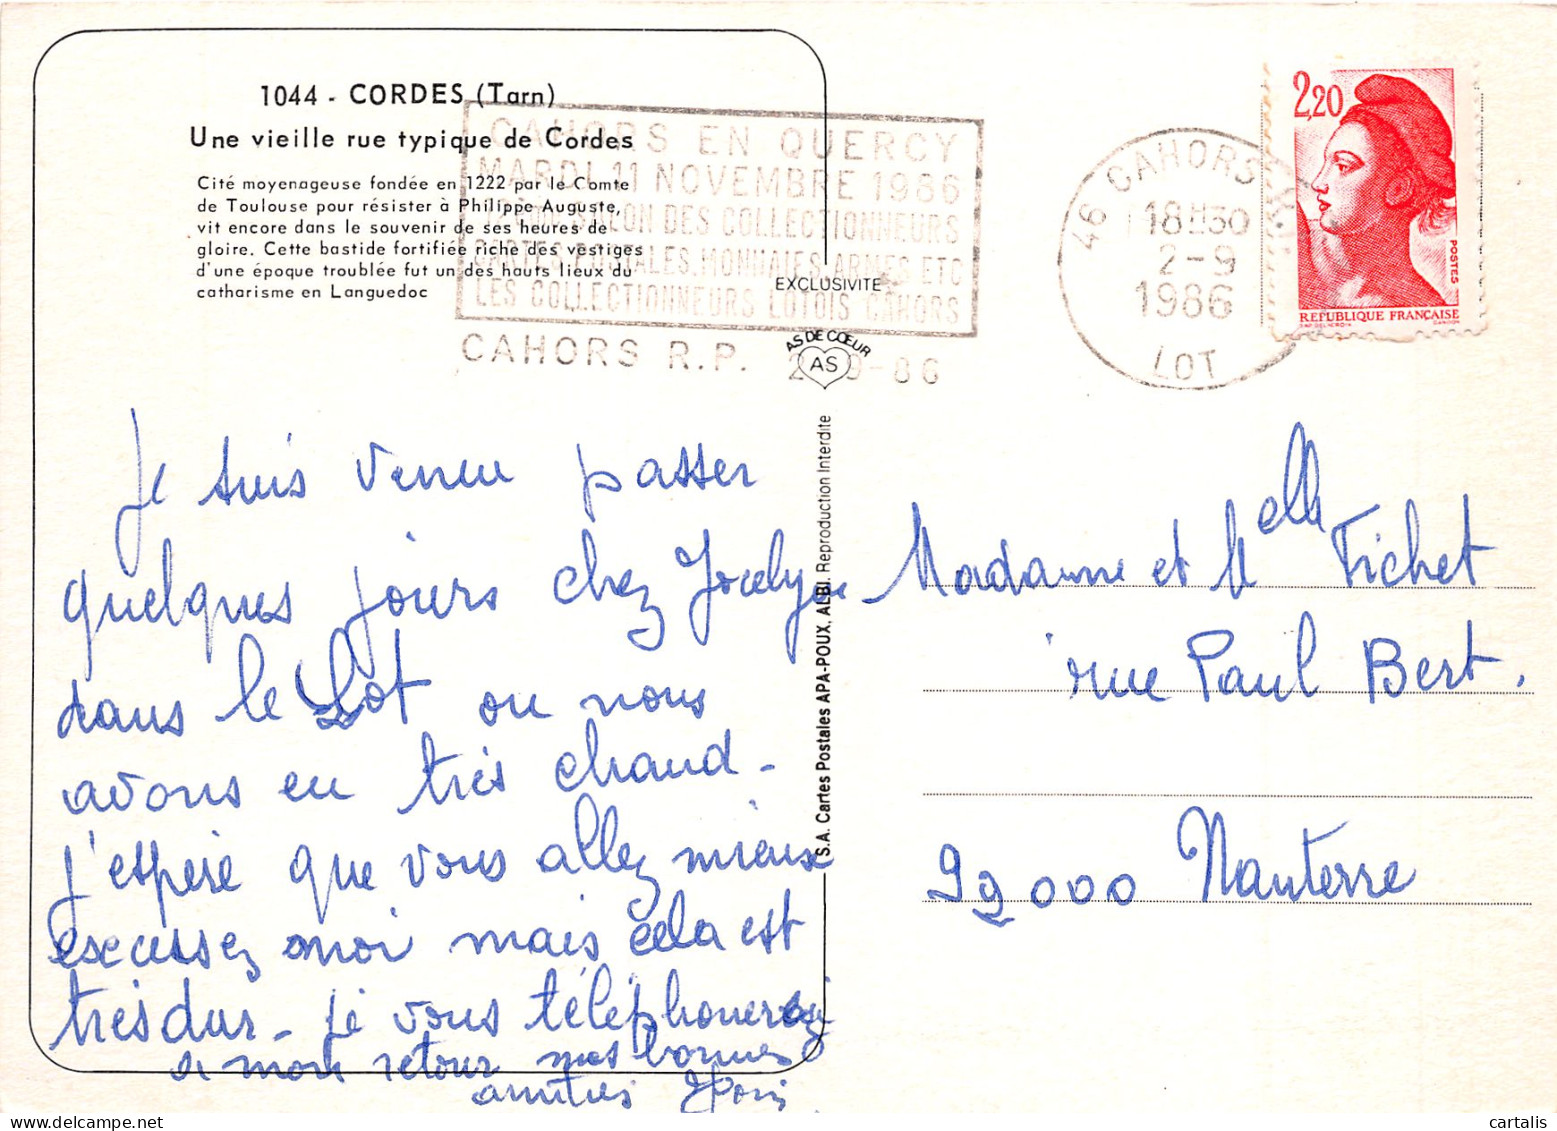 1044 - CORDES (Tarn)
Une vieille rue typique de Cordes
Cité moyenageuse fondée en 1222 par le Comte
de Toulouse pour résister à Philippe Auguste,
vit encore dans le souvenir de ses heures de
gloire. Cette bastide fortifiée riche des vestiges
d'une époque troublée fut un des hauts lieux du
catharisme en Languedoc
CAHORS EN QUERCY
MARDI 11 NOVEMBRE 1986
SALON DES COLLECTIONNEURS
CARTES POSTALES, MONNAIES, ARMES ETC
LES COLLECTIONNEURS LOTOIS CAHORS
CAHORS R.P. 2-9-86
EXCLUSIVITE
AS DE CŒUR
AS
46 CAHORS
18H30
2-9
1986
LOT
2,20
POSTES
REPUBLIQUE FRANÇAISE
S.A. Cartes Postales APA-POUX, ALBI. Reproduction Interdite
Je suis venue passer
quelques jours chez Jocelyne
dans le Lot ou nous
avons eu très chaud -
j'espère que vous allez mieux
excusez moi mais cela est
très dur - je vous téléphonerai
à mon retour mes bonnes
amitiés
Madame et Melle Fichet
rue Paul Bert.
92000 Nanterre
cartalis